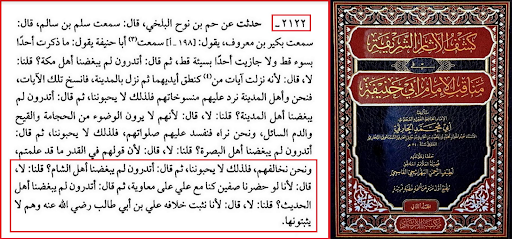 ٢١٢٢ - حدثت عن حم بن نوح البلخي، قال: سمعت سلم بن سالم، قال:
سمعت بكير بن معروف، يقول: [١٩٨ - أ] سمعت(٣) أبا حنيفة يقول: ما ذكرت أحدًا
بسوء قط ولا جازيت أحدًا بسيئة قط، ثم قال: أتدرون لم يبغضنا أهل مكة؟ قلنا:
لا، قال: لأنه نزلت آيات من(٤) كنطق أيديهما ثم نزل بالمدينة، فانسخ تلك الآيات،
فنحن وأهل المدينة نرد عليهم منسوخاتهم فلذلك لا يحبوننا، ثم قال: أتدرون لم
يبغضنا أهل المدينة؟ قلنا: لا، قال: لأنهم لا يرون الوضوء من الحجامة والقيح
والدم السائل، ونحن نراه فنفسد عليهم صلواتهم، فلذلك لا يحبوننا، ثم قال:
أتدرون لم يبغضنا أهل البصرة؟ قلنا: لا، قال: لأن قولهم في القدر ما قد علمتم،
ونحن نخالفهم، فلذلك لا يحبوننا، ثم قال: أتدرون لم يبغضنا أهل الشام؟ قلنا: لا،
قال: لأنا لو حضرنا صفين كنا مع علي على معاوية، ثم قال: أتدرون لم يبغضنا أهل
الحديث؟ قلنا: لا، قال: لأنا نثبت خلافه علي بن أبي طالب رضي الله عنه وهم لا
يثبتونها.
كشف الآثار الشريفة
في
مناقب الإمام أبي حنيفة